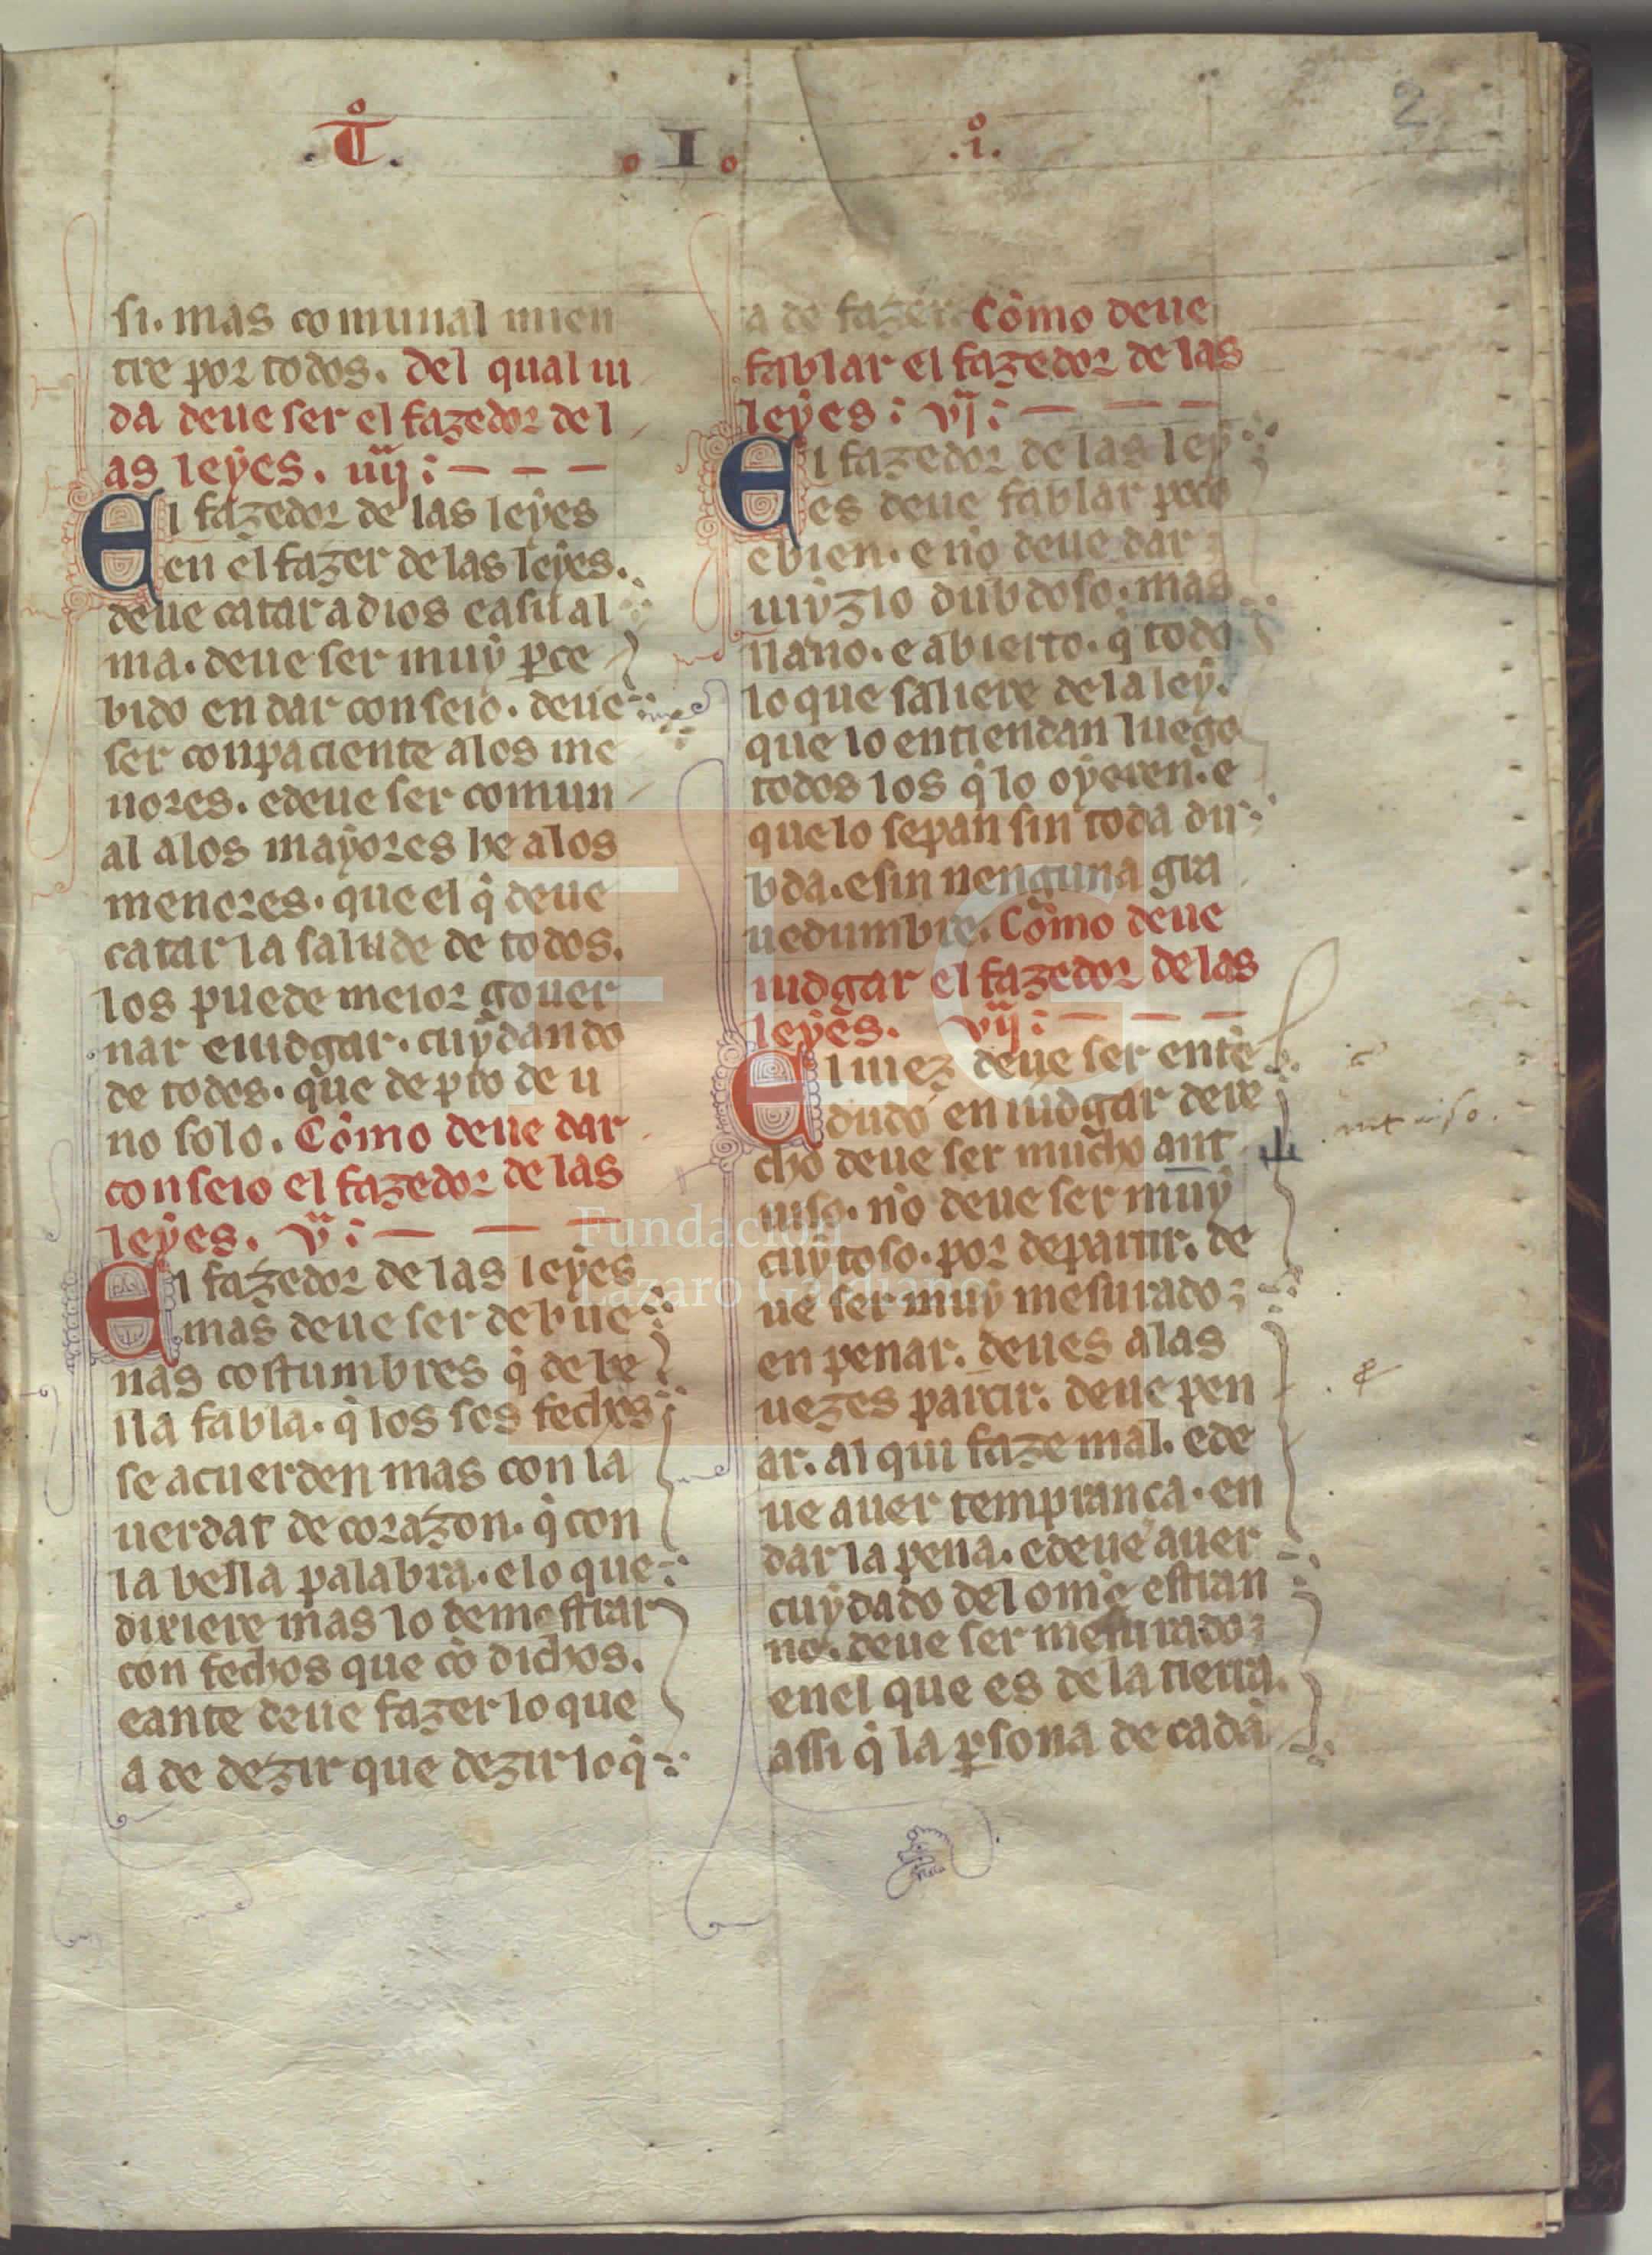 .T̊. .I. .i̊.
2
si. mas comunal mien
tre por todos. Del qual ui
da deue ser el fazedor del
as leyes. iiij :
El fazedor de las leyes
en el fazer de las leyes.
deue catar a dios e a su al
ma. deue ser muy ꝑce
bido en dar conseio. deue
ser conpaciente a los me
nores. e deue ser comun
al a los mayores he a los
menores. que el q̉ deue
catar la salude de todos.
los puede meior gouer
nar e iudgar. cuydando
de todos. que de pro de u
no solo. Cômo deue dar
conseio el fazedor de las
leyes. v :
El fazedor de las leyes
mas deue ser de bue
nas costumbres q̉ de be
lla fabla. q̉ los ses fechos
se acuerden mas con la
uerdat de corazon. q̉ con
la bella palabra. e lo que
dixiere mas lo demostrar
con fechos que cõ dichos.
e ante deue fazer lo que
a de dezir que dezir lo q̉
a de fazer. Cômo deue
fablar el fazedor de las
leyes : vj :
El fazedor de las ley
es deue fablar poco
e bien. e nõ deue dar
iuyzio dubdoso. mas
llano. e abierto. q̉ todo
lo que saliere de la ley.
que lo entiendan luego
todos los q̉ lo oyeren. e
que lo sepan sin toda du
bda. e sin nenguna gra
uedumbre. Cômo deue
iudgar el fazedor de las
leyes. vij :
El iuez deue ser entẽ
dudo en iudgar dere
cho deue ser mucho ant
uiso. nõ deue ser muy
cuytoso. por departir. de
ue ser muy mesurado
en penar. deues a las
uezes partir. deue pen
ar. al qui faze mal. e de
ue auer temprança. en
dar la pena. e deue auer
cuydado del omẽ estran
no. deue ser mesurado
en el que es de la tierra.
assi q̉ la ꝑsona de cada
Fundación
Lázaro Galdiano